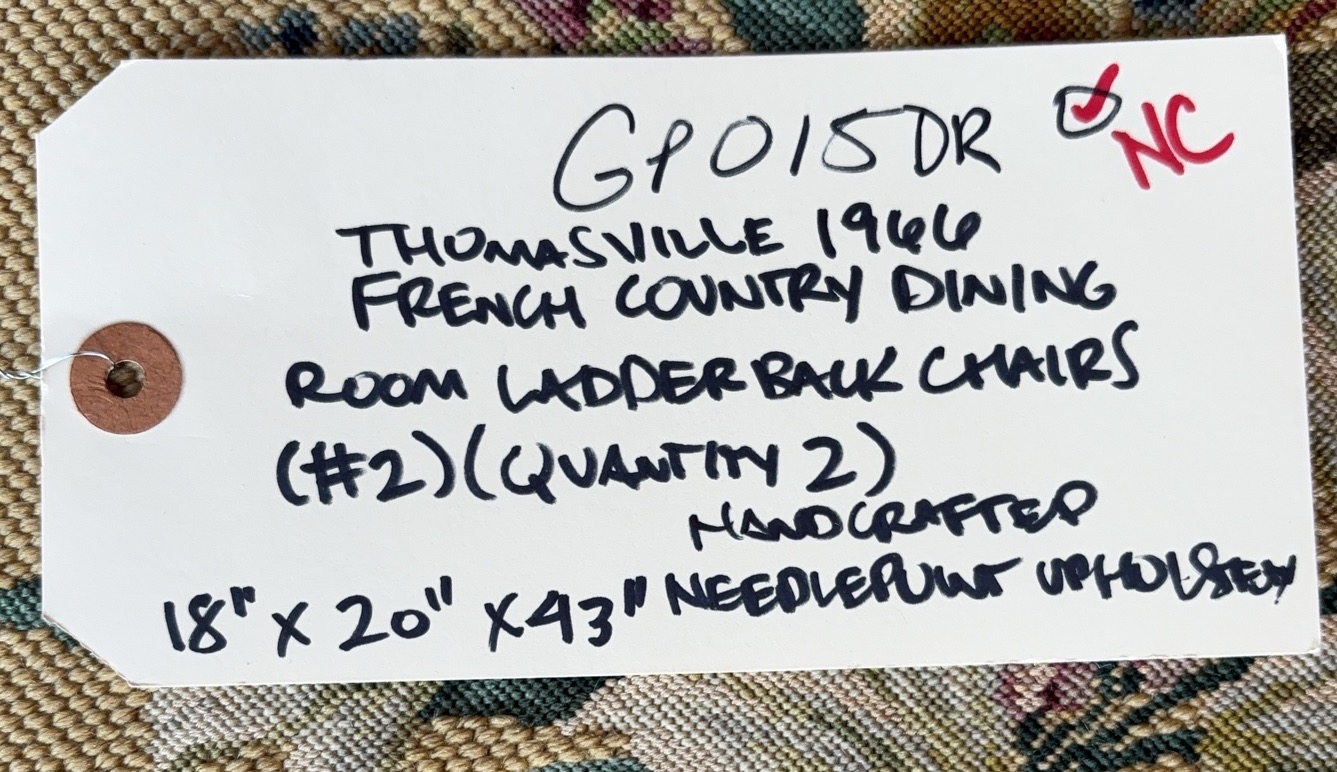 GP015DR NC
THOMASVILLE 1966
FRENCH COUNTRY DINING
ROOM LADDERBACK CHAIRS
(#2) (QUANTITY 2)
HANDCRAFTED
18" X 20" X 43" NEEDLEPOINT UPHOLSTERY